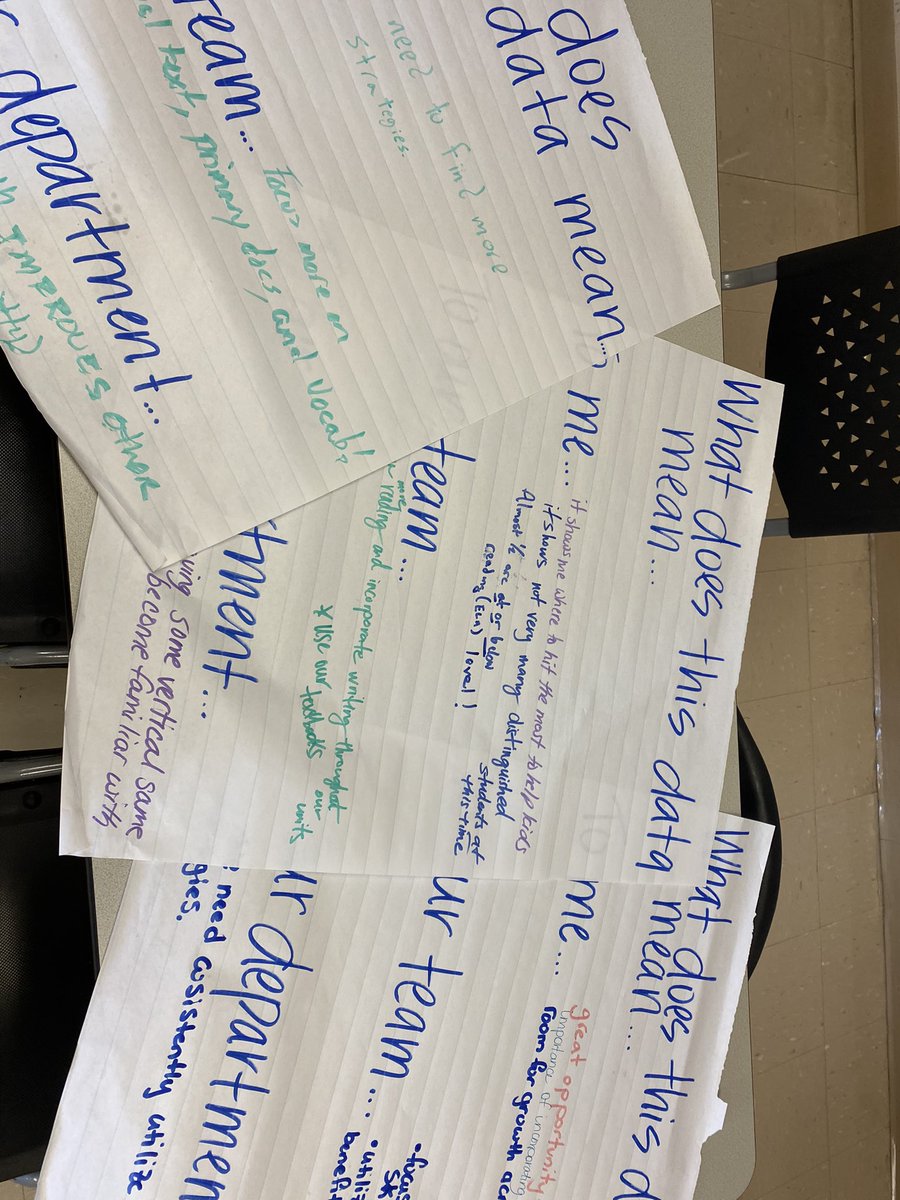 does
data mean...
need to find more
strategies.
team...
Focus more on
text, primary docs, and vocab!
department...
IMPROVES other
What does this data
mean...
me...
it shows me where to hit the most to help kids
it shows not very many distinguished
students at
this time
Almost ½ are at or below
reading (ELA) level!
team...
more
reading and incorporate writing throughout
our
units
* USE our textbooks
tment...
some vertical same
become familiar with
What does this d
mean...
me...
great opportunity
importance of incorporating
room for growth acr
ur team....
•focus
•utiliz
benefi
ur departmen
need cosistently utilize
gies.